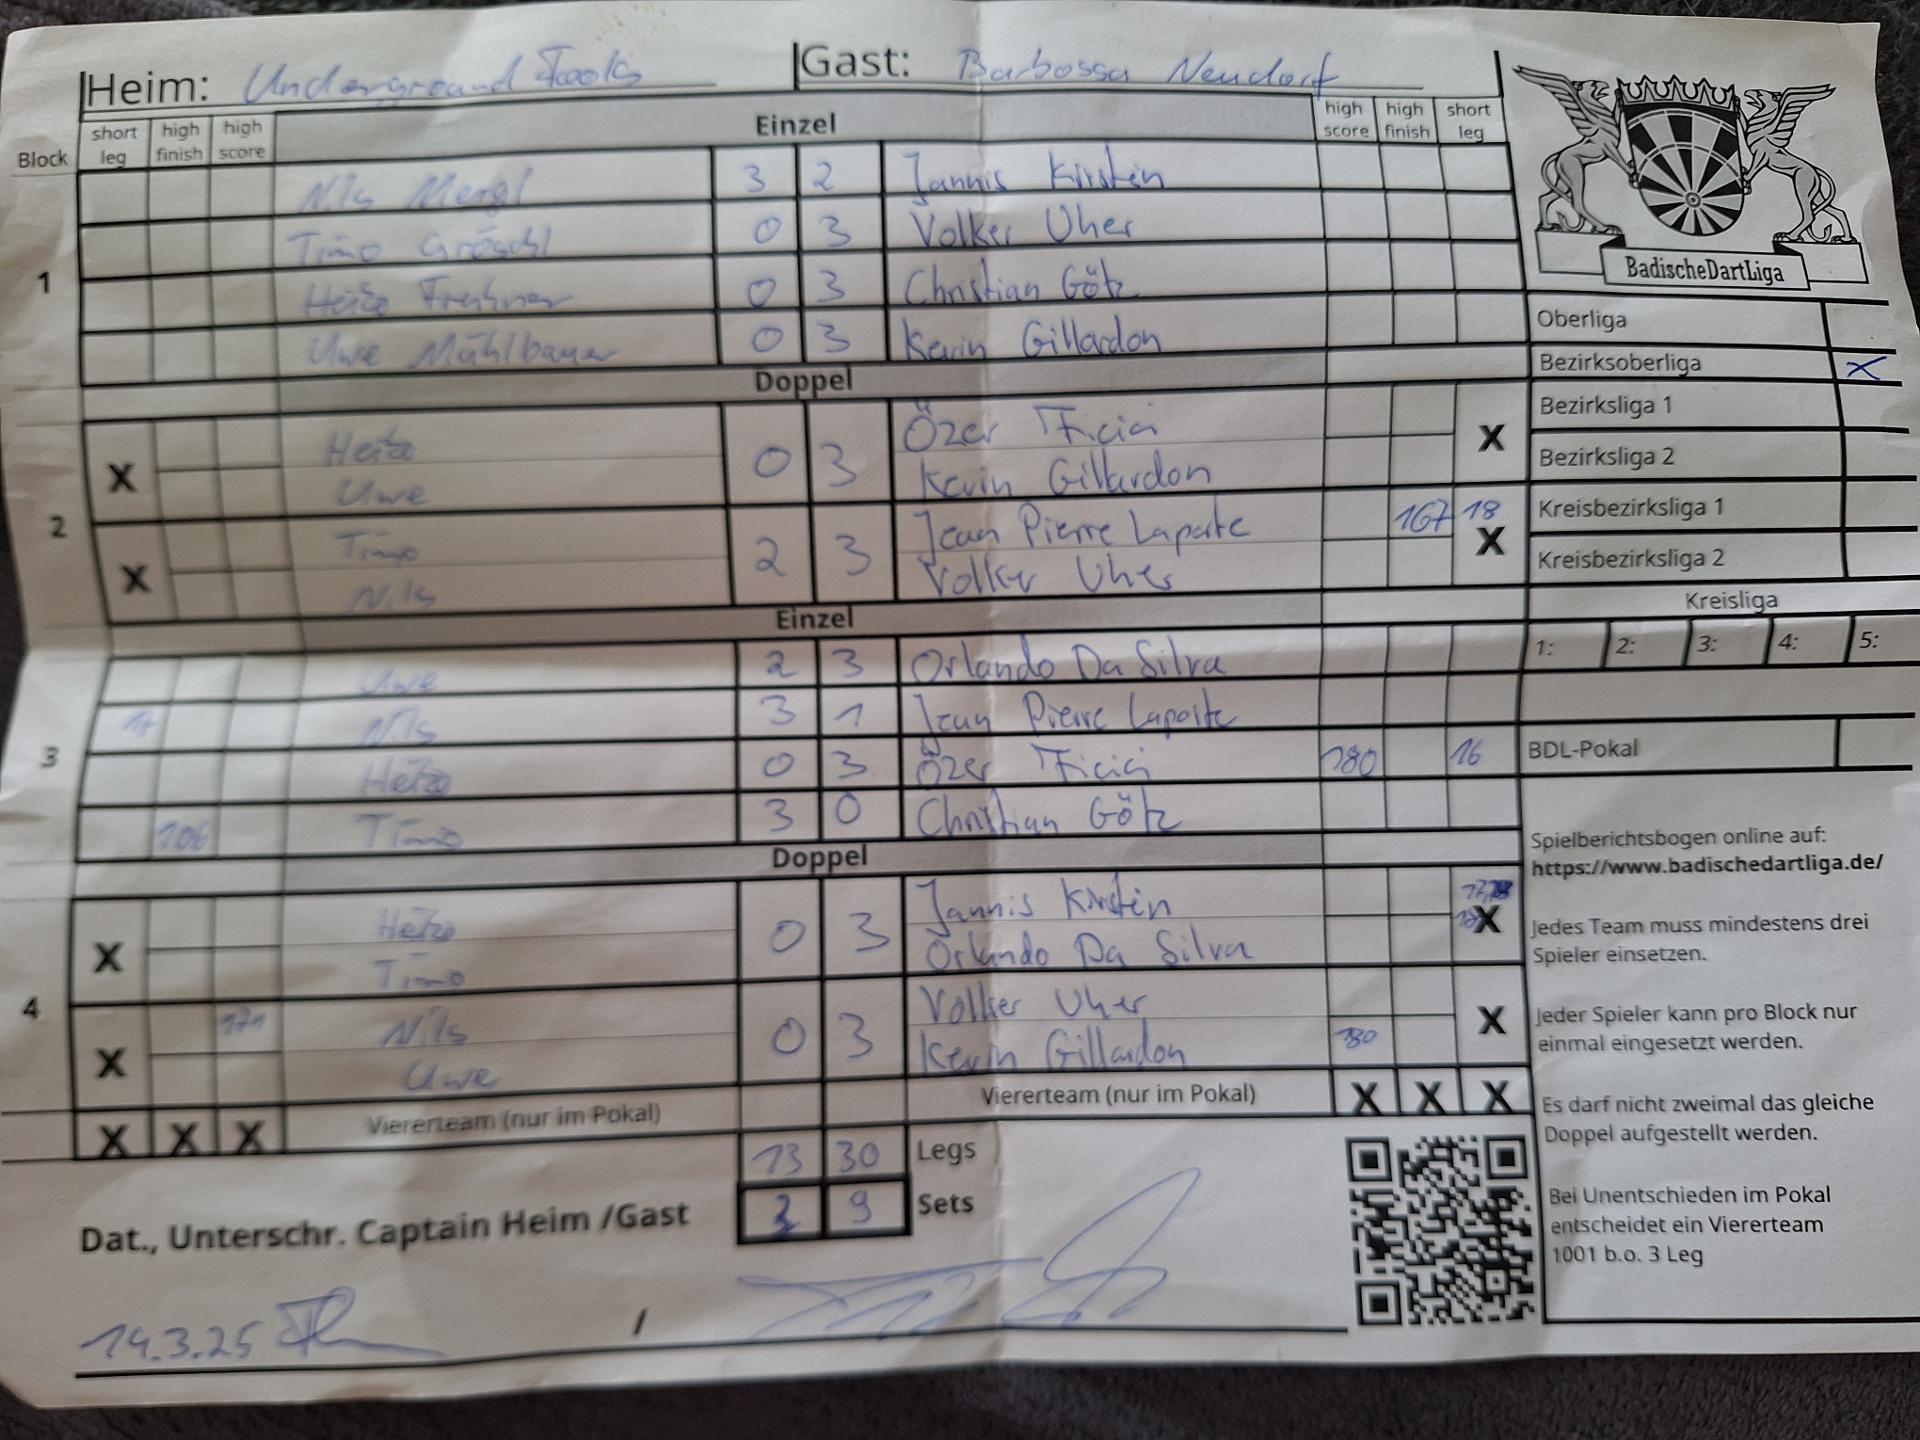 Heim: Underground Fools Gast: Barbossa Neudorf
Block short leg high finish high score Einzel high score high finish short leg
1
Nils Mergl 3 2 Jannis Kirstein
Timo Gröschl 0 3 Volker Uher
Heiko 0 3 Christian Götz
Uwe Mühlbauer 0 3 Kevin Gillardon
Doppel
2
X Heiko 0 3 Özer Ficici X
Uwe Kevin Gillardon
X Timo 2 3 Jean Pierre Laporte 167 18 X
Nils Volker Uher
Einzel
3
Uwe 2 3 Orlando Da Silva
17 Nils 3 1 Jean Pierre Laporte
Heiko 0 3 Özer Ficici 180 16
106 Timo 3 0 Christian Götz
Doppel
4
X Heiko 0 3 Jannis Kirstein X
Timo Orlando Da Silva
X 171 Nils 0 3 Volker Uher X
Uwe Kevin Gillardon 180
X X X Viererteam (nur im Pokal) Viererteam (nur im Pokal) X X X
13 30 Legs
3 9 Sets
Dat., Unterschr. Captain Heim /Gast
14.3.25 /
BadischeDartLiga
Oberliga
Bezirksoberliga X
Bezirksliga 1
Bezirksliga 2
Kreisbezirksliga 1
Kreisbezirksliga 2
Kreisliga
1: 2: 3: 4: 5:
BDL-Pokal
Spielberichtsbogen online auf:
https://www.badischedartliga.de/
Jedes Team muss mindestens drei
Spieler einsetzen.
Jeder Spieler kann pro Block nur
einmal eingesetzt werden.
Es darf nicht zweimal das gleiche
Doppel aufgestellt werden.
Bei Unentschieden im Pokal
entscheidet ein Viererteam
1001 b.o. 3 Leg